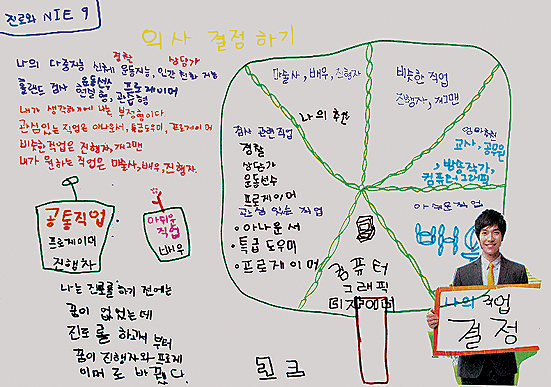 진로와 NIE 9
의사 결정 하기
경찰 상담가
나의 다중지능 신체 운동지능, 인간 친화 지능
홀랜드 검사 운동선수 프로게이머
현실형, 관습형
내가 생각하기에 나는 부정형이다
관심있는 직업은 아나운서, 특급도우미, 프로게이머
비슷한직업은 진행자, 개그맨
내가 원하는 직업은 마술사, 배우, 진행자.
공통직업
프로게이머
진행자
아쉬운
직업
배우
나는 진로를 하기 전에는
꿈이 없었는데
진로를 하고서 부터
꿈이 진행자와 프로게
이머로 바꼈다.
마술사, 배우, 진행자
나의 추천
비슷한 직업
진행자, 개그맨
검사 관련직업
경찰
상담가
운동선수
프로게이머
관심 있는 직업
• 아나운서
• 특급 도우미
• 프로게이머
엄마추천
교사, 공무원
, 방송작가,
컴퓨터그래픽
아쉬운직업
배우
컴퓨터
그래픽
디자이너
나의 직업
결정